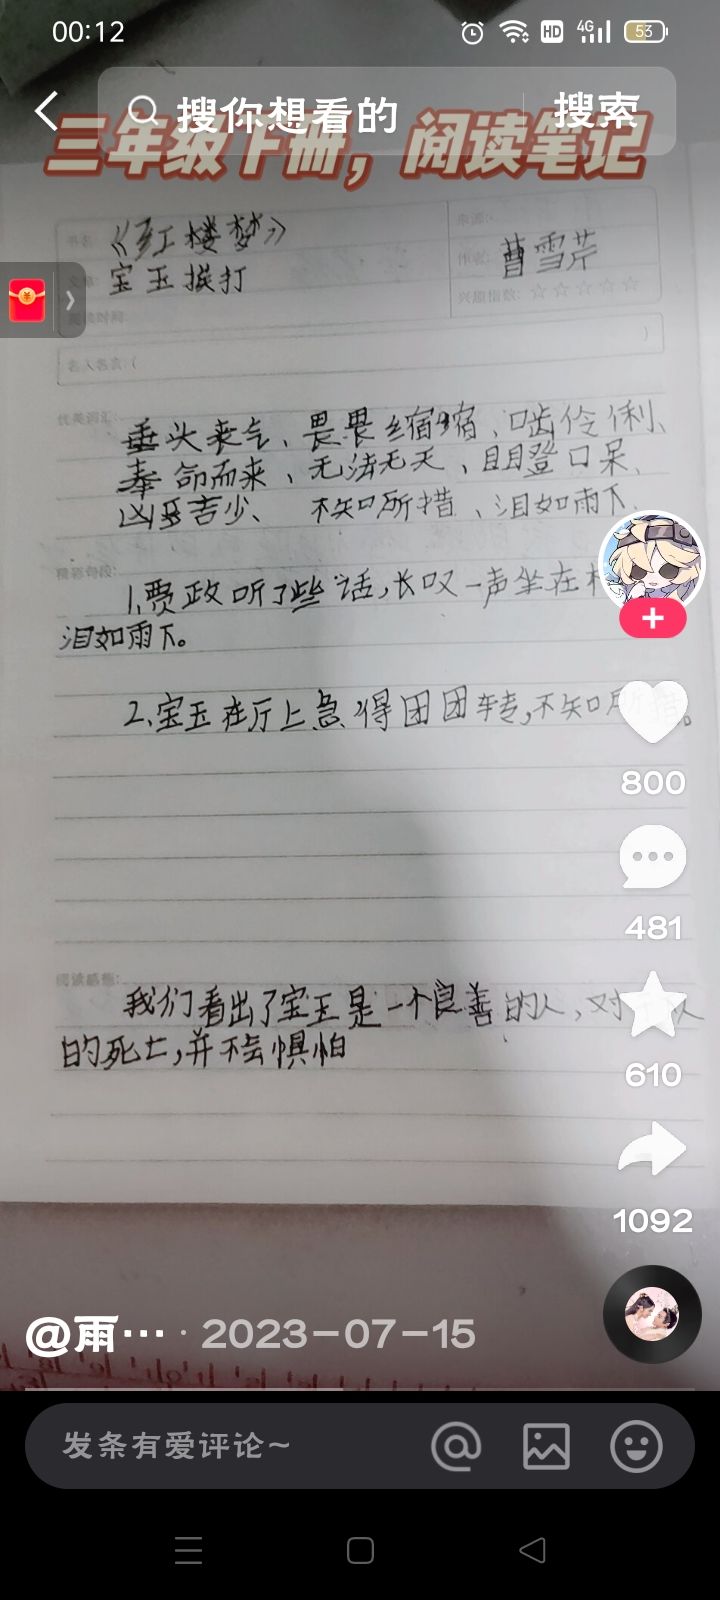 00:12
HD 4G 53
搜你想看的 搜索
三年级下册，阅读笔记
《红楼梦》
曹雪芹
宝玉挨打
兴趣指数：☆☆☆☆☆
阅读时间：
名人名言：（ ）
优美词汇：
垂头丧气、畏畏缩缩、口齿伶俐、
奉命而来、无法无天、目瞪口呆、
凶多吉少、不知所措、泪如雨下、
精彩句段：
1.贾政听了些话，长叹一声坐在
泪如雨下。
2.宝玉在厅上急得团团转，不知所措。
800
481
阅读感想：
我们看出了宝玉是一个良善的人，对
的死亡，并不会惧怕
610
1092
@雨… · 2023-07-15
发条有爱评论~